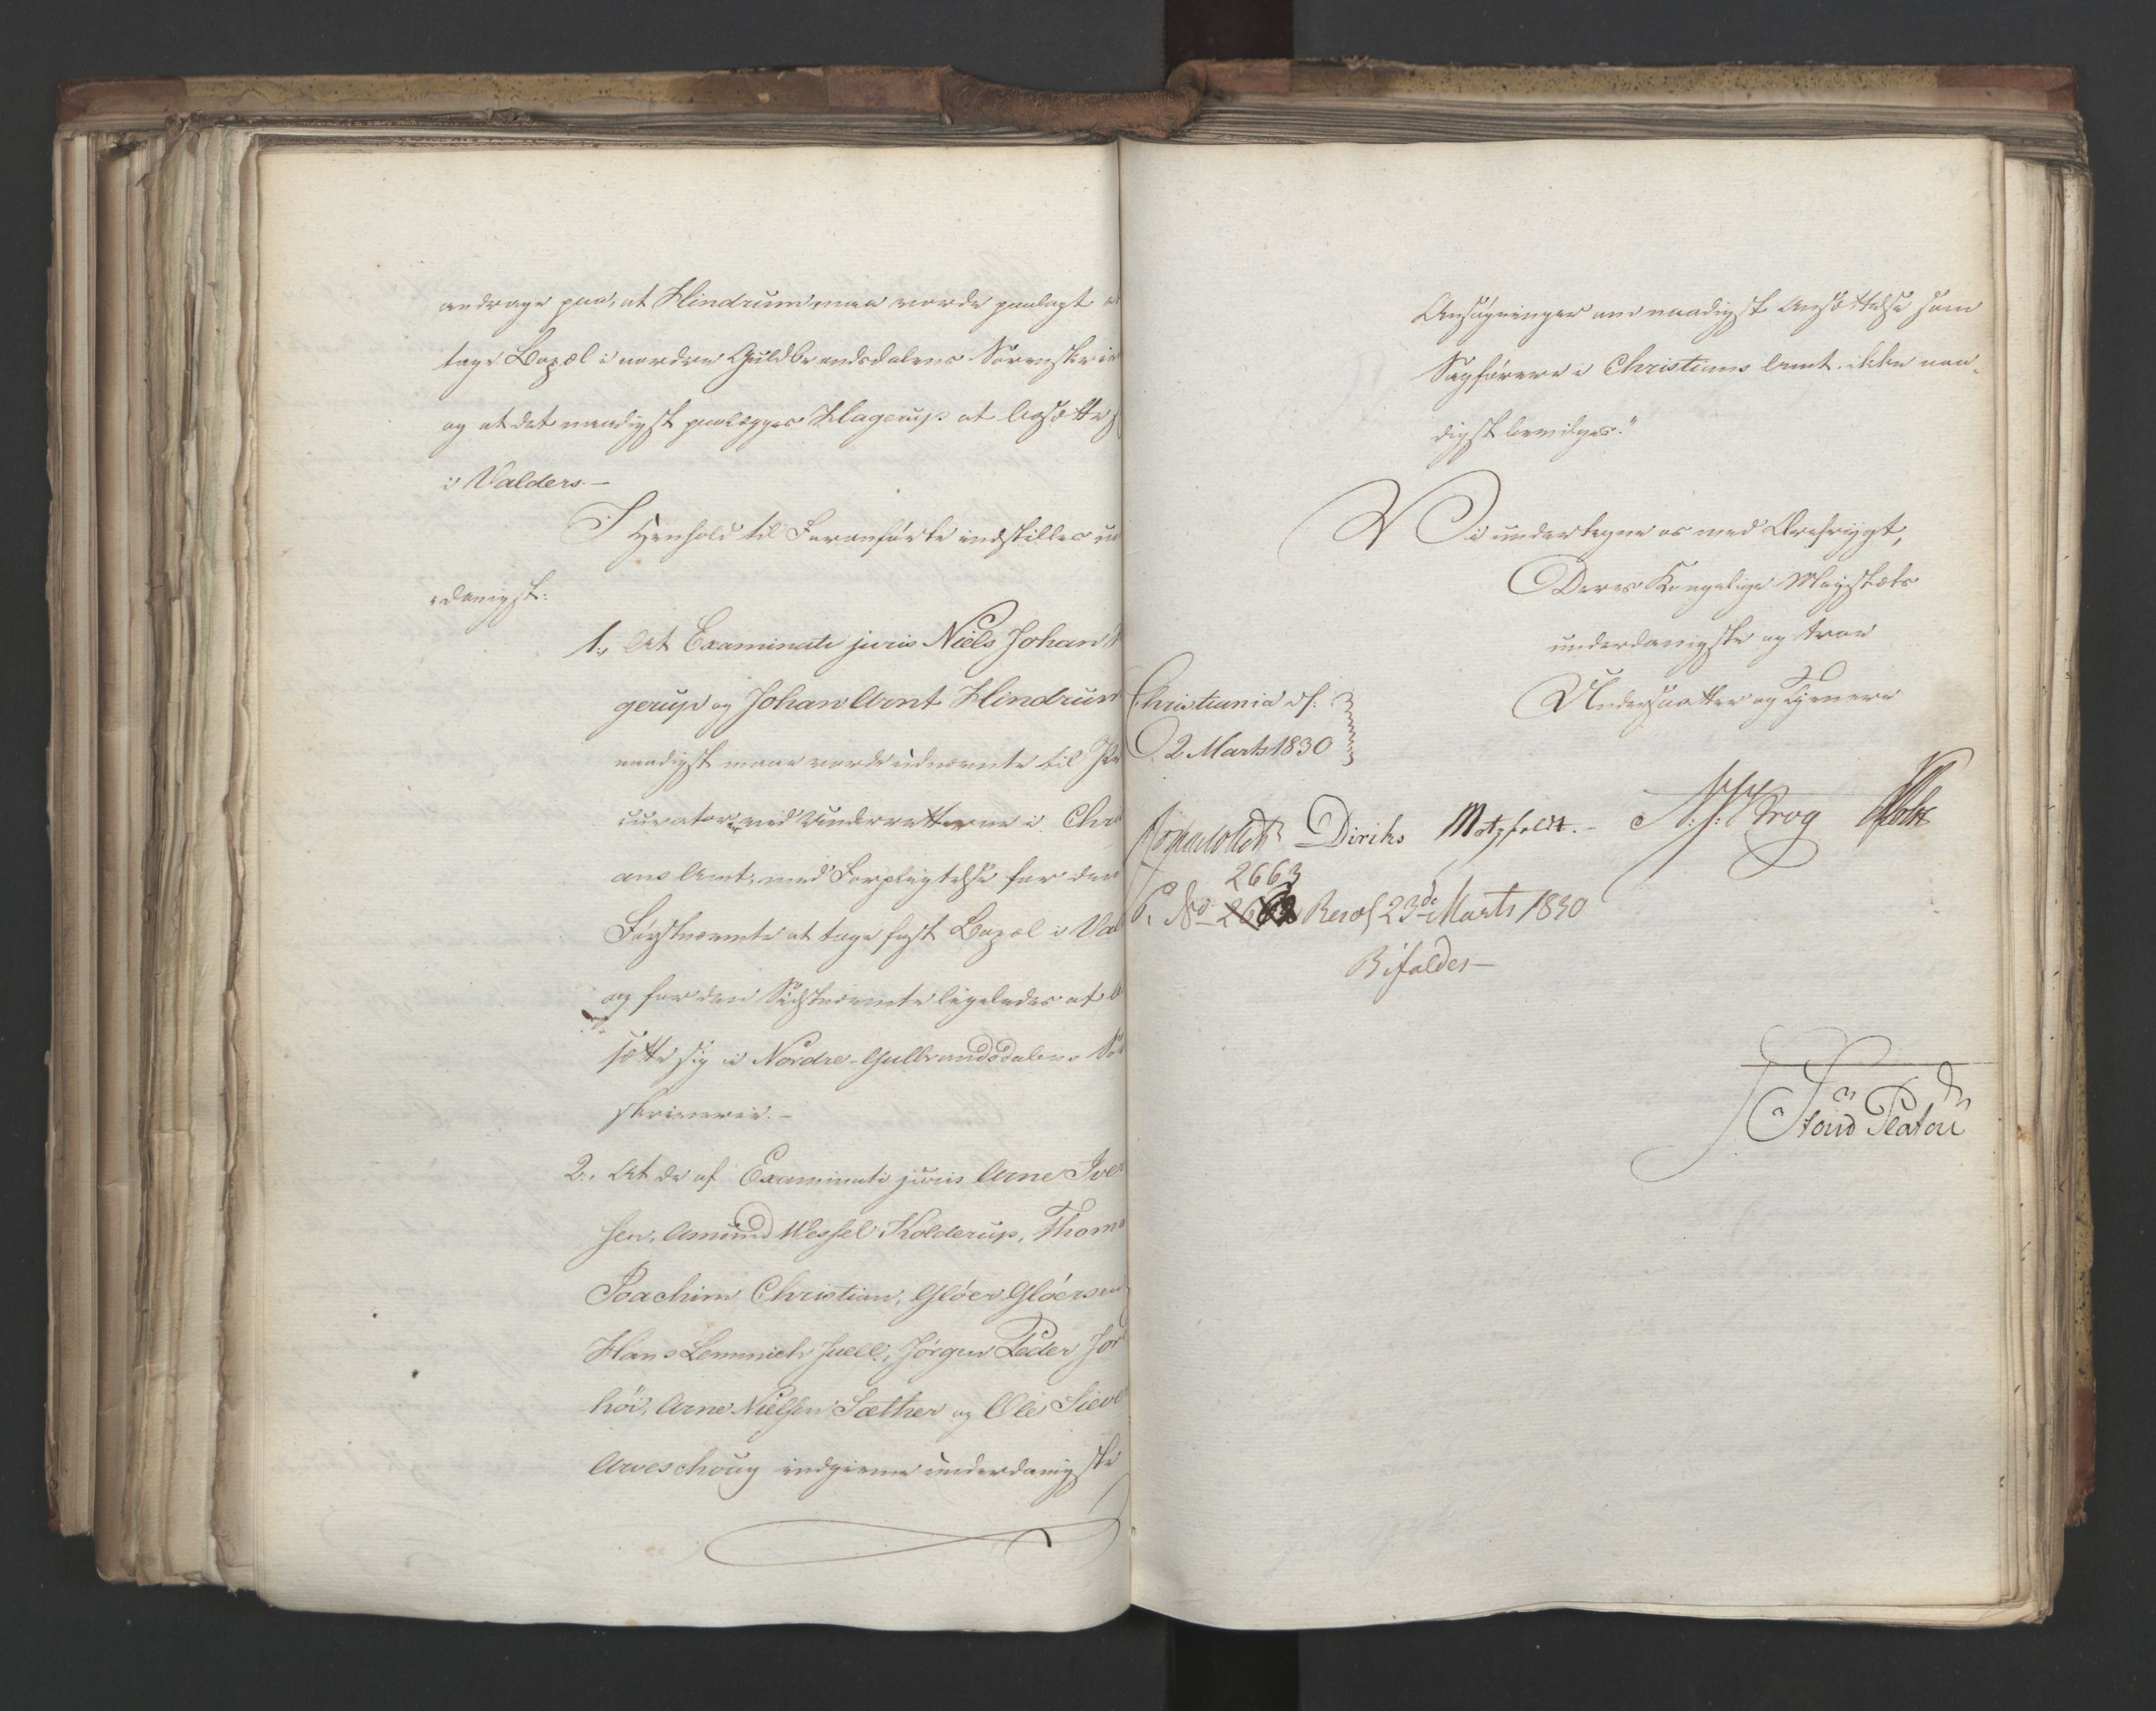 andrage paa, at Hindrum maa vorde paalagt at
tage Bopæl i nordre Guldbrandsdalens Sorenskriv
og at det naadigst paalægges Hagerup at bosætte s
i Valders.—
I Henhold til Foranførte indstilles un
"danigst:
1., At Examinati juris Niels Johan H
gerup og Johan Arnt Hindrum
naadigst maae vorde udnævnte til Pro
curatorer ved Underretterne i Christi
ans Amt, med Forpligtelse for den
Førstnævnte at tage fast Bopæl i Val
og for den Sidstnævnte ligeledes at b
sætte sig i Nordre-Gulbrandsdalens So
skriverie.—
2., At de af Examinati juris Arne Iver
sen, Amund Wessel Kolderup, Thoma
Joachim Christian, Glöer Glöersen
Hans Lemmich Juell, Jörgen Peder Jor
höi, Arne Nielsen Sæther og Ole Siev
Aveschoug indgivne underdanigste
Ansøgninger om naadigst Ansættelse som
Sagførere i Christians Amt, ikke naa-
digst bevilges."
Vi undertegne os med Ærefrygt,
Deres Kongelige Majestæts
underdanigste og troe
Undersaatter og Tjenere
Christiania d.
2 Marts 1830
Diriks Motzfeldt.- N. J. Krog
2663
P. No Resol 23de Marts 1830
Bifaldes—
Stoud Platou